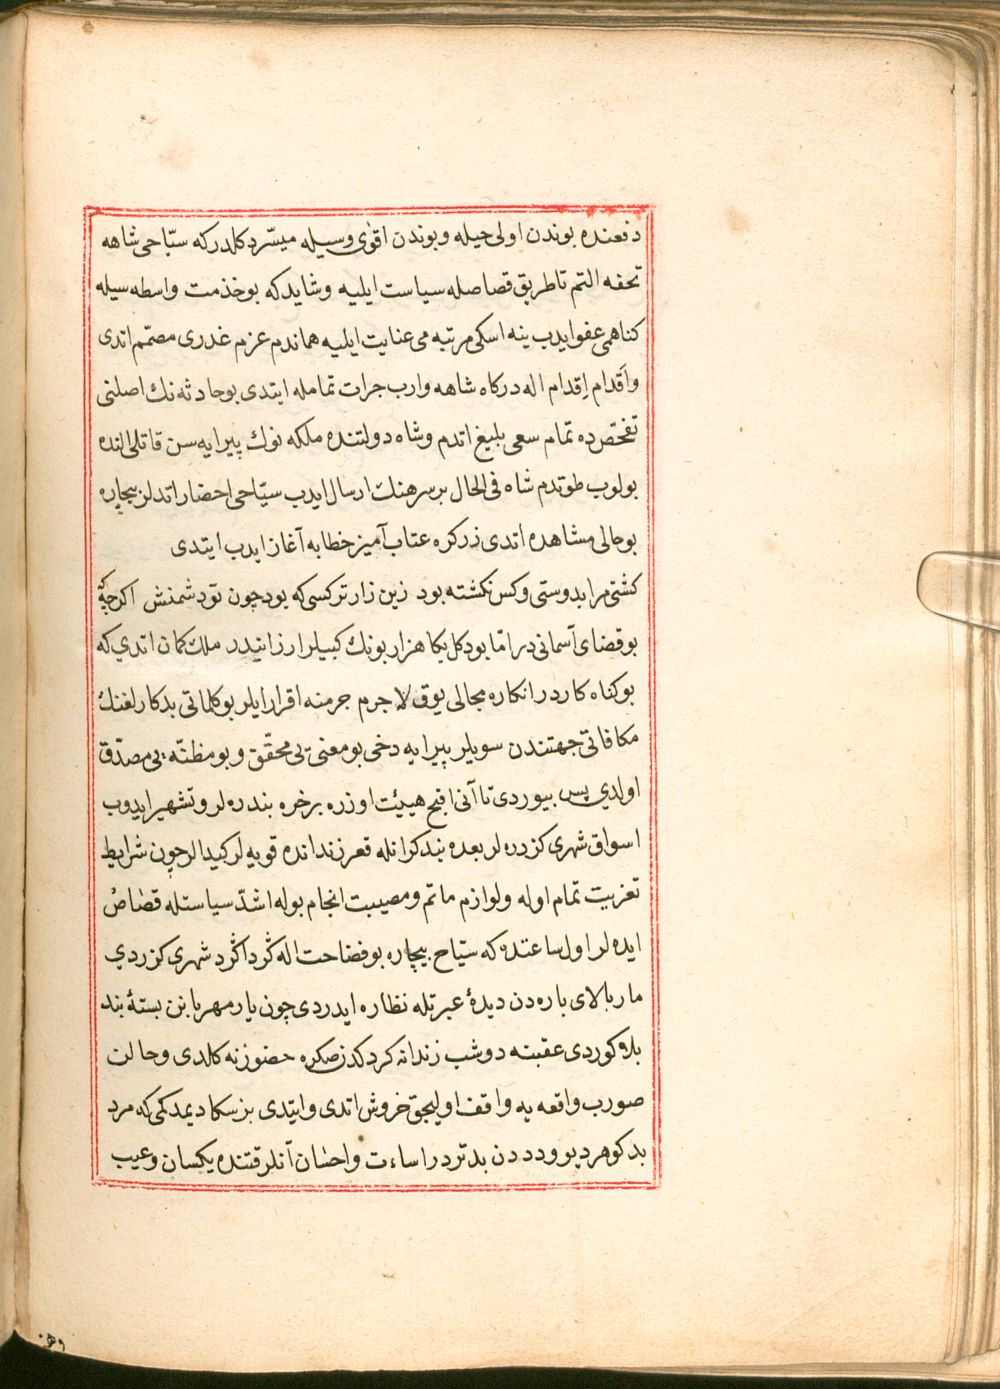 دفعنده بوندن اولی حیله وبوندن اقوی وسیله میسّر دکلدرکه سیّاحی شاهه
تحفه التم تا طریق قصاصله سیاست ایلیه وشاید که بو خذمت واسطه سیله
کناهمی عفو ایدب ینه اسکی مرتبه می عنایت ایلیه هماندم عزم غدری مصمّم اتدی
واَقدام اِقدام اله درکاه شاهه وارب جرات تمامله ایتدی بو حادثه نك اصلنی
تفحّص ده تمام سعی بلیغ اتدم وشاه دولتنده ملکه نوك پیرایه سن قاتلی النده
بولوب طوتدم شاه فی الحال بر سرهنك ارسال ایدب سیّاحی احضار اتدلر بیچاره
بو حالی مشاهده اتدی زرکره عتاب آمیز خطابه آغاز ایدب ایتدی
کشتی مرا بدوستی وکس نکشته بود زین زارتر کسی که بود چون تو دشمنش اکرچه
بو قضای آسمانی در امّا بود کل یکا هزار بونك کبیلر ارزانیدر ملك کمان اتدی که
بو کناه کاردر انکاره مجالی یوق لا جرم جرمنه اقرار ایلر بو کلماتی بدکارلغنك
مکافاتی جهتندن سویلر پیرایه دخی بو معنی یی محقّق وبو مظنّه یی مصدّق
اولدی پس بیوردی تا آنی اقبح هیئت اوزره بر خره بندره لر وتشهیر ایدوب
اسواق شهری کزدره لر بعده بند کرانله قعر زندانده قویه لر کیدالر چون شرایط
تعزیت تمام اوله ولوازم ماتم ومصیبت انجام بوله اشدّ سیاستله قصاص
ایده لر اول ساعتده که سیّاح بیچاره بو فضاحت اله کرد اکرد شهری کزردی
مار بالای باره دن دیدۀ عبرتله نظاره ایدردی چون یار مهربانن بستۀ بند
بلا کوردی عقبنه دوشب زندانه کردکدن صکره حضورنه کلدی وحالت
صورب واقعه یه واقف اولیجق خروش اتدی وایتدی بن سکا دیمدکمی که مرد
بدکوهر دیو و دد دن بدتردر اساءت واحسان آنلر قتنده یکسان وعیب